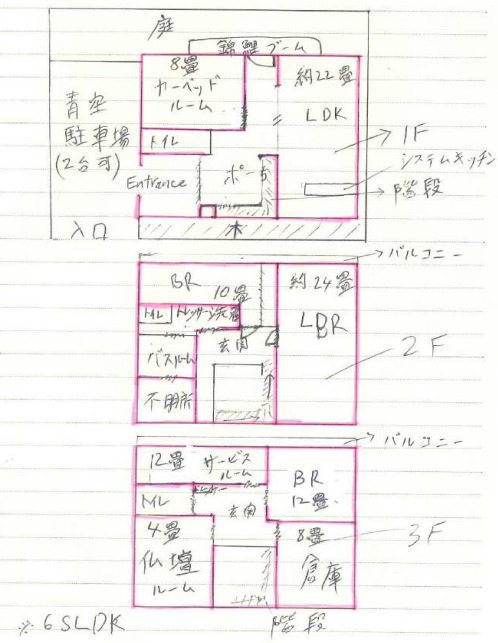 庭
錦鯉ブーム
8畳
カーペッド
ルーム
約22畳
LDK
青空
駐車場
(2台可)
1F
トイレ
システムキッチン
Entrance
ポーチ
階段
入口
木
バルコニー
BR
10畳
約24畳
LBR
トイレ
玄関
2F
バスルーム
不明所
バルコニー
12畳
サービス
ルーム
BR
12畳
トイレ
玄関
4畳
仏壇
ルーム
8畳
倉庫
3F
※6SLDK
階段